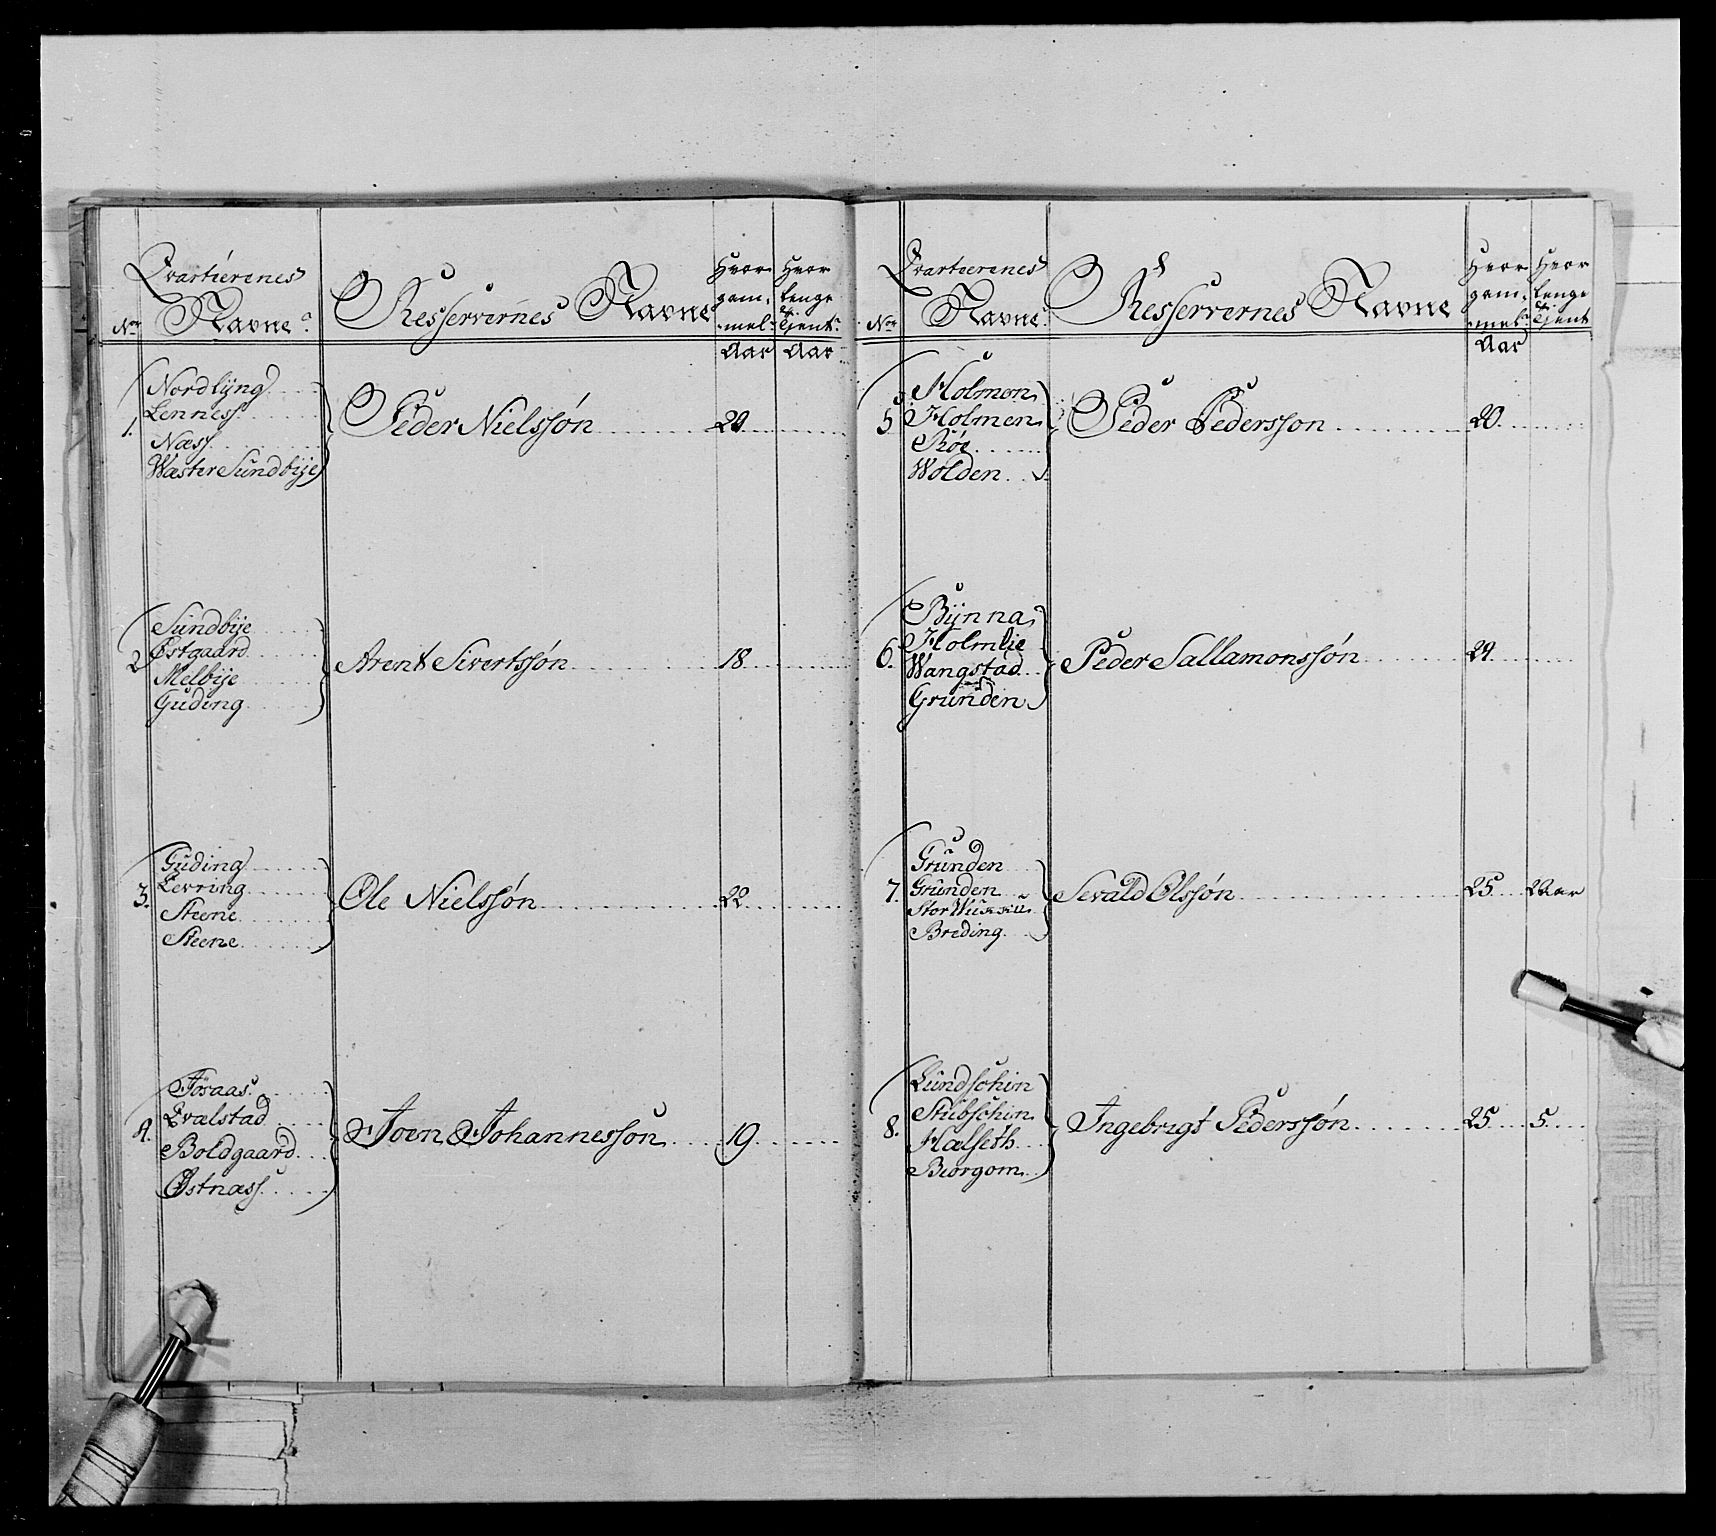 Qvartierenes
Navne
Resservernes Navne
Hvor
gam-
mel
Hvor
lenge
Tjent
No
Aar
Aar
Nordlÿng
Lenness
1.
Næss
Wæster Sundbÿe
Peder Nielssøn
20
Sundbÿe
Østgaard
2
Melbÿe
Guding
Arent Sivertssøn
18
Guding
Levring
3.
Steene
Steene
Ole Nielssøn
22
Tosaas
Qvælstad
4.
Boldgaard
Østnæss
Joen Johannesson
19
Qvartierenes
Navne
Resservernes Navne
Hvor
gam-
mel
Hvor
lenge
Tjent
No
Aar
Holmen
5
Holmen
Røe
Wolden
Peder Pedersson
20
Bÿnna
Holmlie
6.
Wangstad
Grunden
Peder Sallamonssøn
24
Grunden
7.
Grunden
Stor Wukku
Breding
Sevald Olssøn
25
2 Aar
Lundschin
Stubschin
8.
Halseth
Biorgom
Ingebrigt Pederssøn
25
5